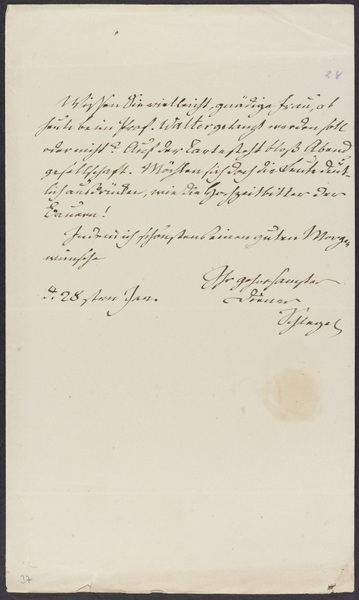 28
Wissen Sie vielleicht, gnädige Frau, ob
heute beim Prof. Walter getanzt werden soll
oder nicht? Auf der Karte steht bloß Abend
gesellschaft. Möchten sich doch die Leute deut
lich ausdrücken, wie die Hochzeitbitter der
Bauern!
Indem ich schönstens einen guten Morgen
wünsche
Ihr gehorsamster
Diener
Schlegel
d. 28sten Jan.
37